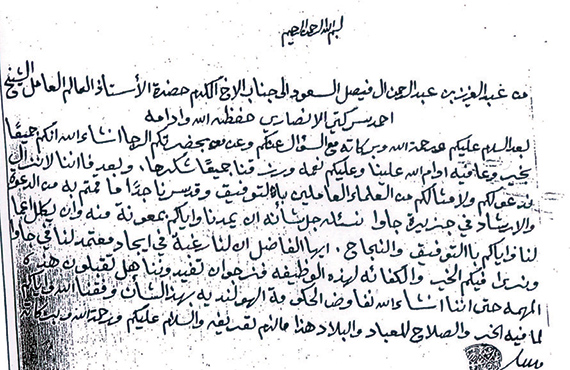 بسم الله الرحمن الرحيم
من عبد العزيز بن عبد الرحمن ال فيصل السعود الى جناب الاخ المكرم حضرة الأستاذ العالم العامل الشيخ
احمد سركتي الانصاري حفظه الله وادامه
بعد السلام عليكم ورحمة الله وبركاته مع السؤال عنكم وعن صحة حضرتكم الرجا انشاء الله انكم جميعًا
بخير وعافيه ادام الله علينا وعليكم نعمه ورزقنا جميعًا شكرها. وبعد فاننا لانزال
ندعو لكم ولامثالكم من العلماء العاملين باالتوفيق وقد سرنا جدًا ما قمتم به من الدعوة
والارشاد في جزيرة جاوا نسئله جل شأنه ان يمدنا واياكم بمعونة منه وان يكلل اعما
لنا واياكم باالتوفيق والنجاح. ايها الفاضل ان لنا رغبة في ايجاد معتمد لنا في جاوا
ونرى فيكم الخير والكفائه لهذه الوظيفه فنرجوان تفيدوننا هل تقبلون هذه
المهمه حتى اننا انشاء الله نفاوض الحكومة الهولنديه بهذا الشأن وفقنا الله واياكم
لما فيه الخير والصلاح للعباد والبلاد هذا مالزم تعريفه والسلام عليكم ورحمة الله وبركاته